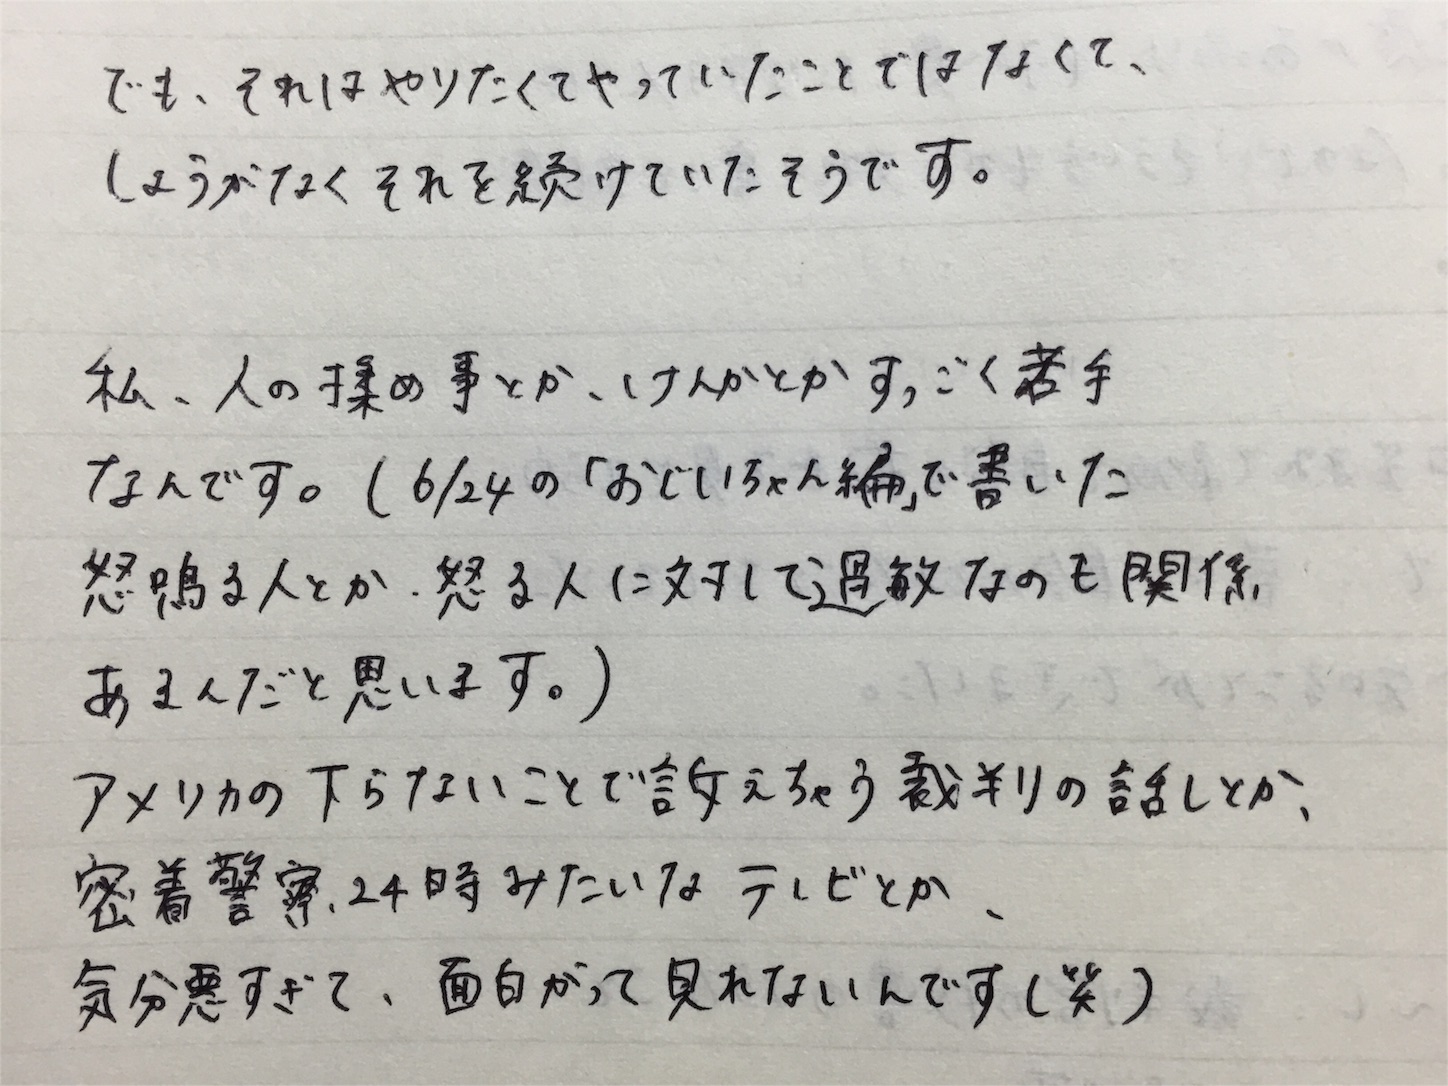 でも、それはやりたくてやっていたことではなくて、
しょうがなくそれを続けていたそうです。
私、人の揉め事とか、けんかとかすっごく苦手
なんです。(6/24の「おじいちゃん編」で書いた
怒鳴る人とか、怒る人に対して過敏なのも関係
あるんだと思います。)
アメリカの下らないことで訴えちゃう裁判の話しとか、
密着警察、24時みたいなテレビとか、
気分悪すぎて、面白がって見れないんです(笑)